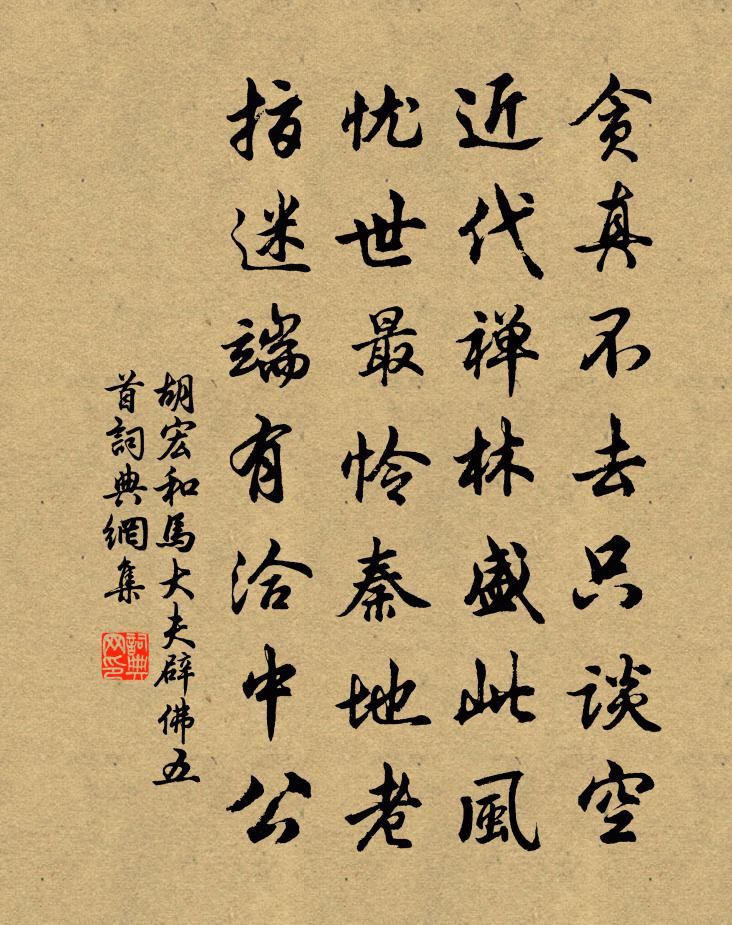 贪真不去只談空
近代禅林盛此風
忧世最怜秦地老
指迷端有洽中公
胡宏和馬大夫辟佛五
首詞典網集
詞典网印